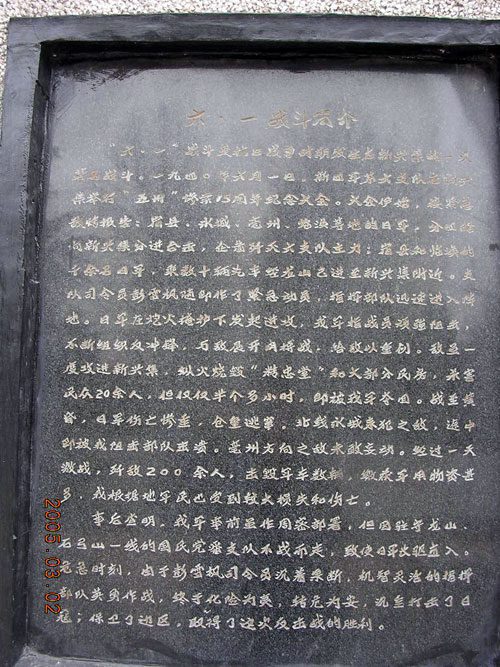 六·一战斗简介
"六·一"战斗是抗日战争时期发生在新兴集的一次
著名战斗。一九四〇年六月一日，新四军第六支队在新兴
集举行"五卅"惨案15周年纪念大会。大会伊始，接
敌情报告：永城、亳州、等地的日军，分
向新兴集分进合击，企图歼灭六支队主力；
千余名日军，乘数十辆汽车经龙山已进至新兴集附近。支
队司令员彭雪枫随即作了紧急动员，指挥部队迅速进入阵
地。日军在炮火掩护下发起进攻，我军指战员顽强阻击，
不断组织反冲锋，与敌展开肉搏战，给敌以重创。敌虽一
度攻进新兴集，纵火烧毁"忠堂"和大部分民房，杀害
民众20余人，但仅仅半个多小时，即被我军夺回。战至黄
昏，日军伤亡惨重，仓皇逃窜。北线永城来犯之敌，途中
即被我阻击部队击溃。亳州方向之敌未敢妄动。经过一天
激战，歼敌200余人，击毁军车数辆，缴获军用物资甚
多，我根据地军民也受到较大损失和伤亡。
事后查明，我军事前虽作周密部署，但因驻守龙山、
石弓山一线的国民党军支队不战而走，致使日军长驱直入。
危急时刻，由于彭雪枫司令员沉着果断，机智灵活的指挥
部队英勇作战，终于化险为夷，转危为安，沉重打击了日
寇；保卫了边区，取得了这次反击战的胜利。
2005.03.02